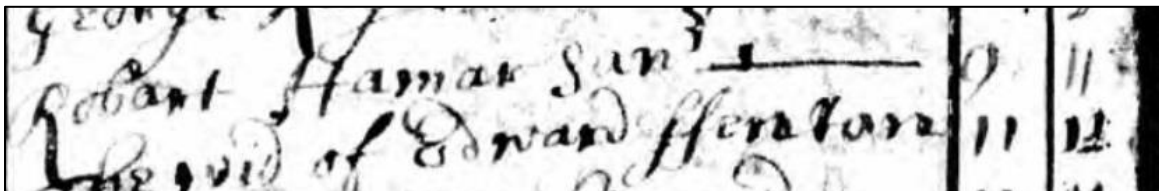 George
Robart Hamar 9 11
The wid of Edward ffenton 11 12